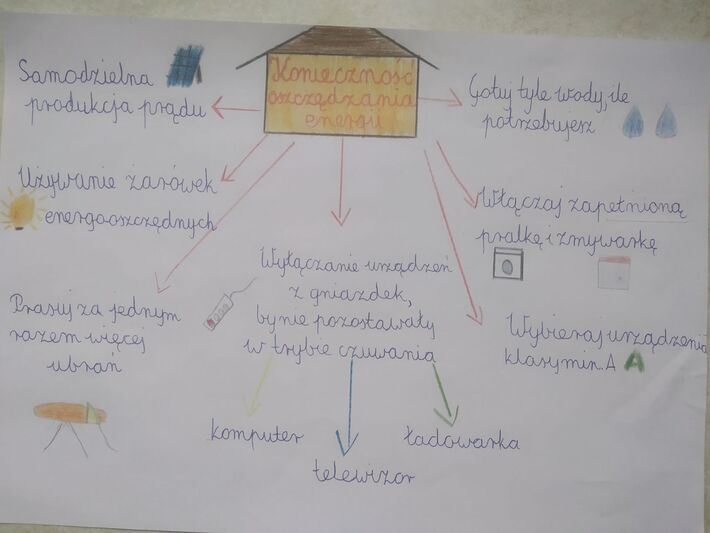 Konieczność
oszczędzania
energii
Samodzielna
produkcja prądu
Używanie żarówek
energooszczędnych
Prasuj za jednym
razem więcej
ubrań
Wyłączanie urządzeń
z gniazdek,
by nie pozostawały
w trybie czuwania
komputer
telewizor
ładowarka
Gotuj tyle wody, ile
potrzebujesz
Włączaj zapełnioną
pralkę i zmywarkę
Wybieraj urządzenia
klasy min. A A